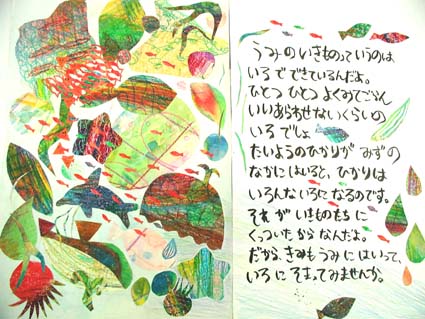 うみのいきものっていうのは
いろでできているんだよ。
ひとつひとつよくみてごらん
いいあらわせないくらいの
いろでしょ
たいようのひかりがみずの
なかにはいると、ひかりは
いろんないろになるのです。
それがいきものたちに
くっついたからなんだよ。
だから、きみもうみにはいって、
いろにそまってみませんか。